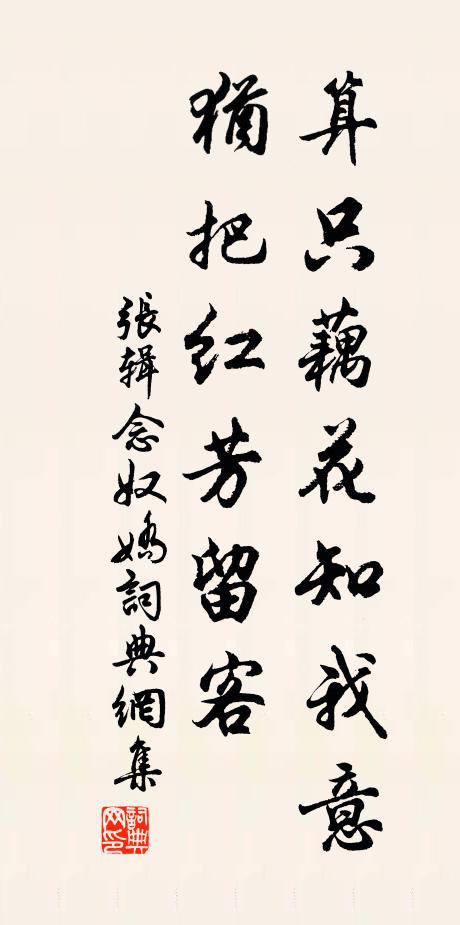 算只藕花知我意
犹把红芳留客
張辑念奴嬌詞典網集
詞典網印